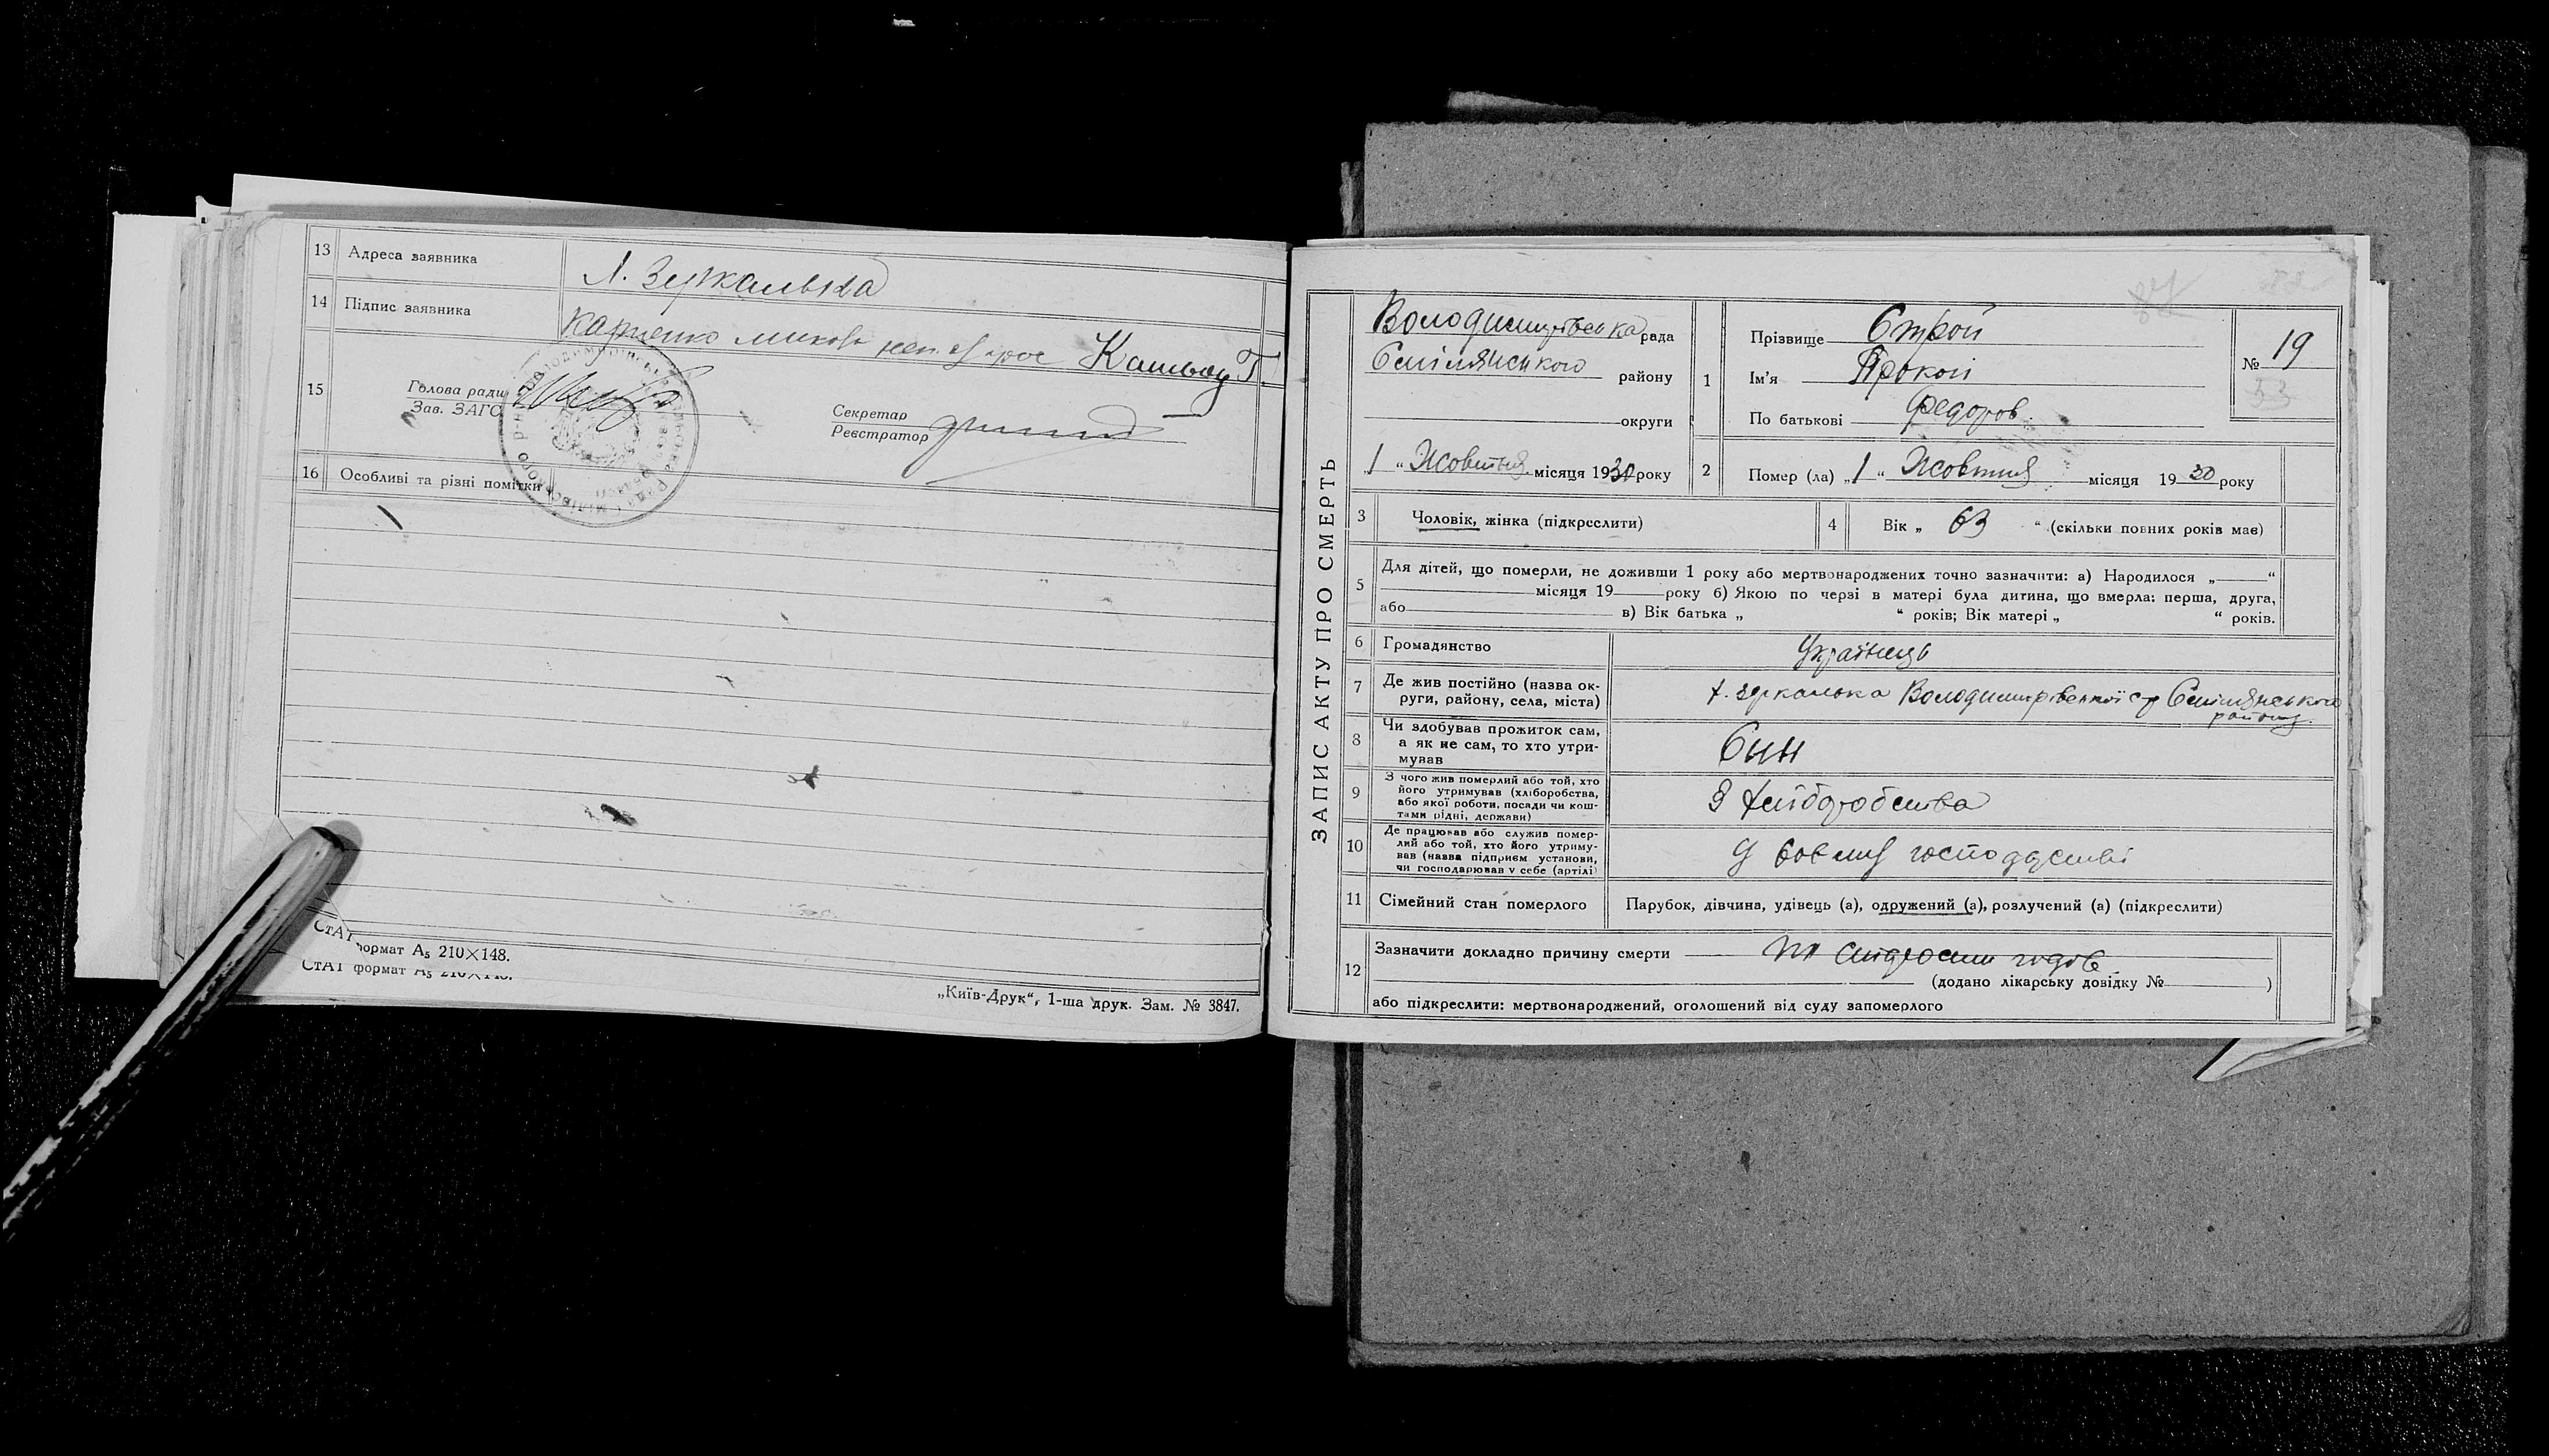 13 Адреса заявника Л. Зеркалька
14 Підпис заявника Карпенко
15 Голова ради
Зав. ЗАГС
Секретар
Реєстратор
16 Особливі та різні помітки
СтАТ формат А5 210×148.
СтАТ формат А5 210×148.
„Київ-Друк“, 1-ша друк. Зам. № 3847.
ЗАПИС АКТУ ПРО СМЕРТЬ
Володимирівська рада
Смілянського району
округи
1 “ Жовтня місяця 1930 року
1 Прізвище Строй
Ім’я Прокоп
По батькові Федоров.
№ 19
53
2 Помер (ла) „1“ Жовтня місяця 1930 року
3 Чоловік, жінка (підкреслити)
4 Вік „ 63 “ (скільки повних років має)
5 Для дітей, що померли, не доживши 1 року або мертвонароджених точно зазначити: а) Народилося „ “
місяця 19 року б) Якою по черзі в матері була дитина, що вмерла: перша, друга,
або в) Вік батька „ “ років; Вік матері „ “ років.
6 Громадянство Українець
7 Де жив постійно (назва ок-
руги, району, села, міста)
х. зеркалька Володимирівської с/р Смілянського
району.
8 Чи здобував прожиток сам,
а як не сам, то хто утри-
мував
Син
9 З чого жив померлий або той, хто
його утримував (хліборобства,
або якої роботи, посади чи кош-
тами рідні, держави)
З хліборобства
10 Де працював або служив помер-
лий або той, хто його утриму-
вав (назва підприєм установи,
чи господарював у себе (артілі)
У господарстві
11 Сімейний стан померлого Парубок, дівчина, удівець (а), одружений (а), розлучений (а) (підкреслити)
12 Зазначити докладно причину смерти годов
(додано лікарську довідку № )
або підкреслити: мертвонароджений, оголошений від суду запомерлого